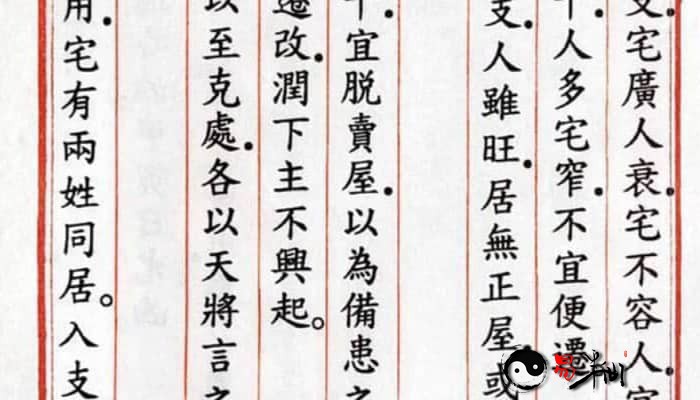 支.宅廣人衰.宅不容人.
干.人多宅窄.不宜便遷
支.人雖旺.居無正屋.或
干.宜脱賣屋.以為備患之
遷改.潤下主不興起。
以至克處.各以天將言之
用.宅有兩姓同居。入支